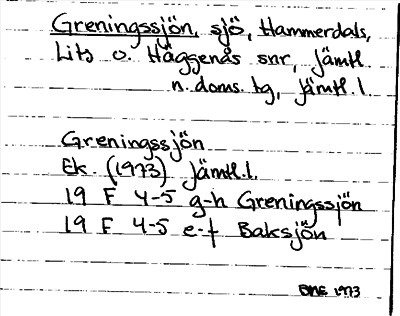 Greningssjön, sjö, Hammerdals,
Lits o. Häggenås snr, Jämtl.
n. doms. tg, Jämtl. l.
Greningssjön
Ek. (1973) Jämtl. l.
19 F 4-5 g-h Greningssjön
19 F 4-5 e-f Baksjön
1973